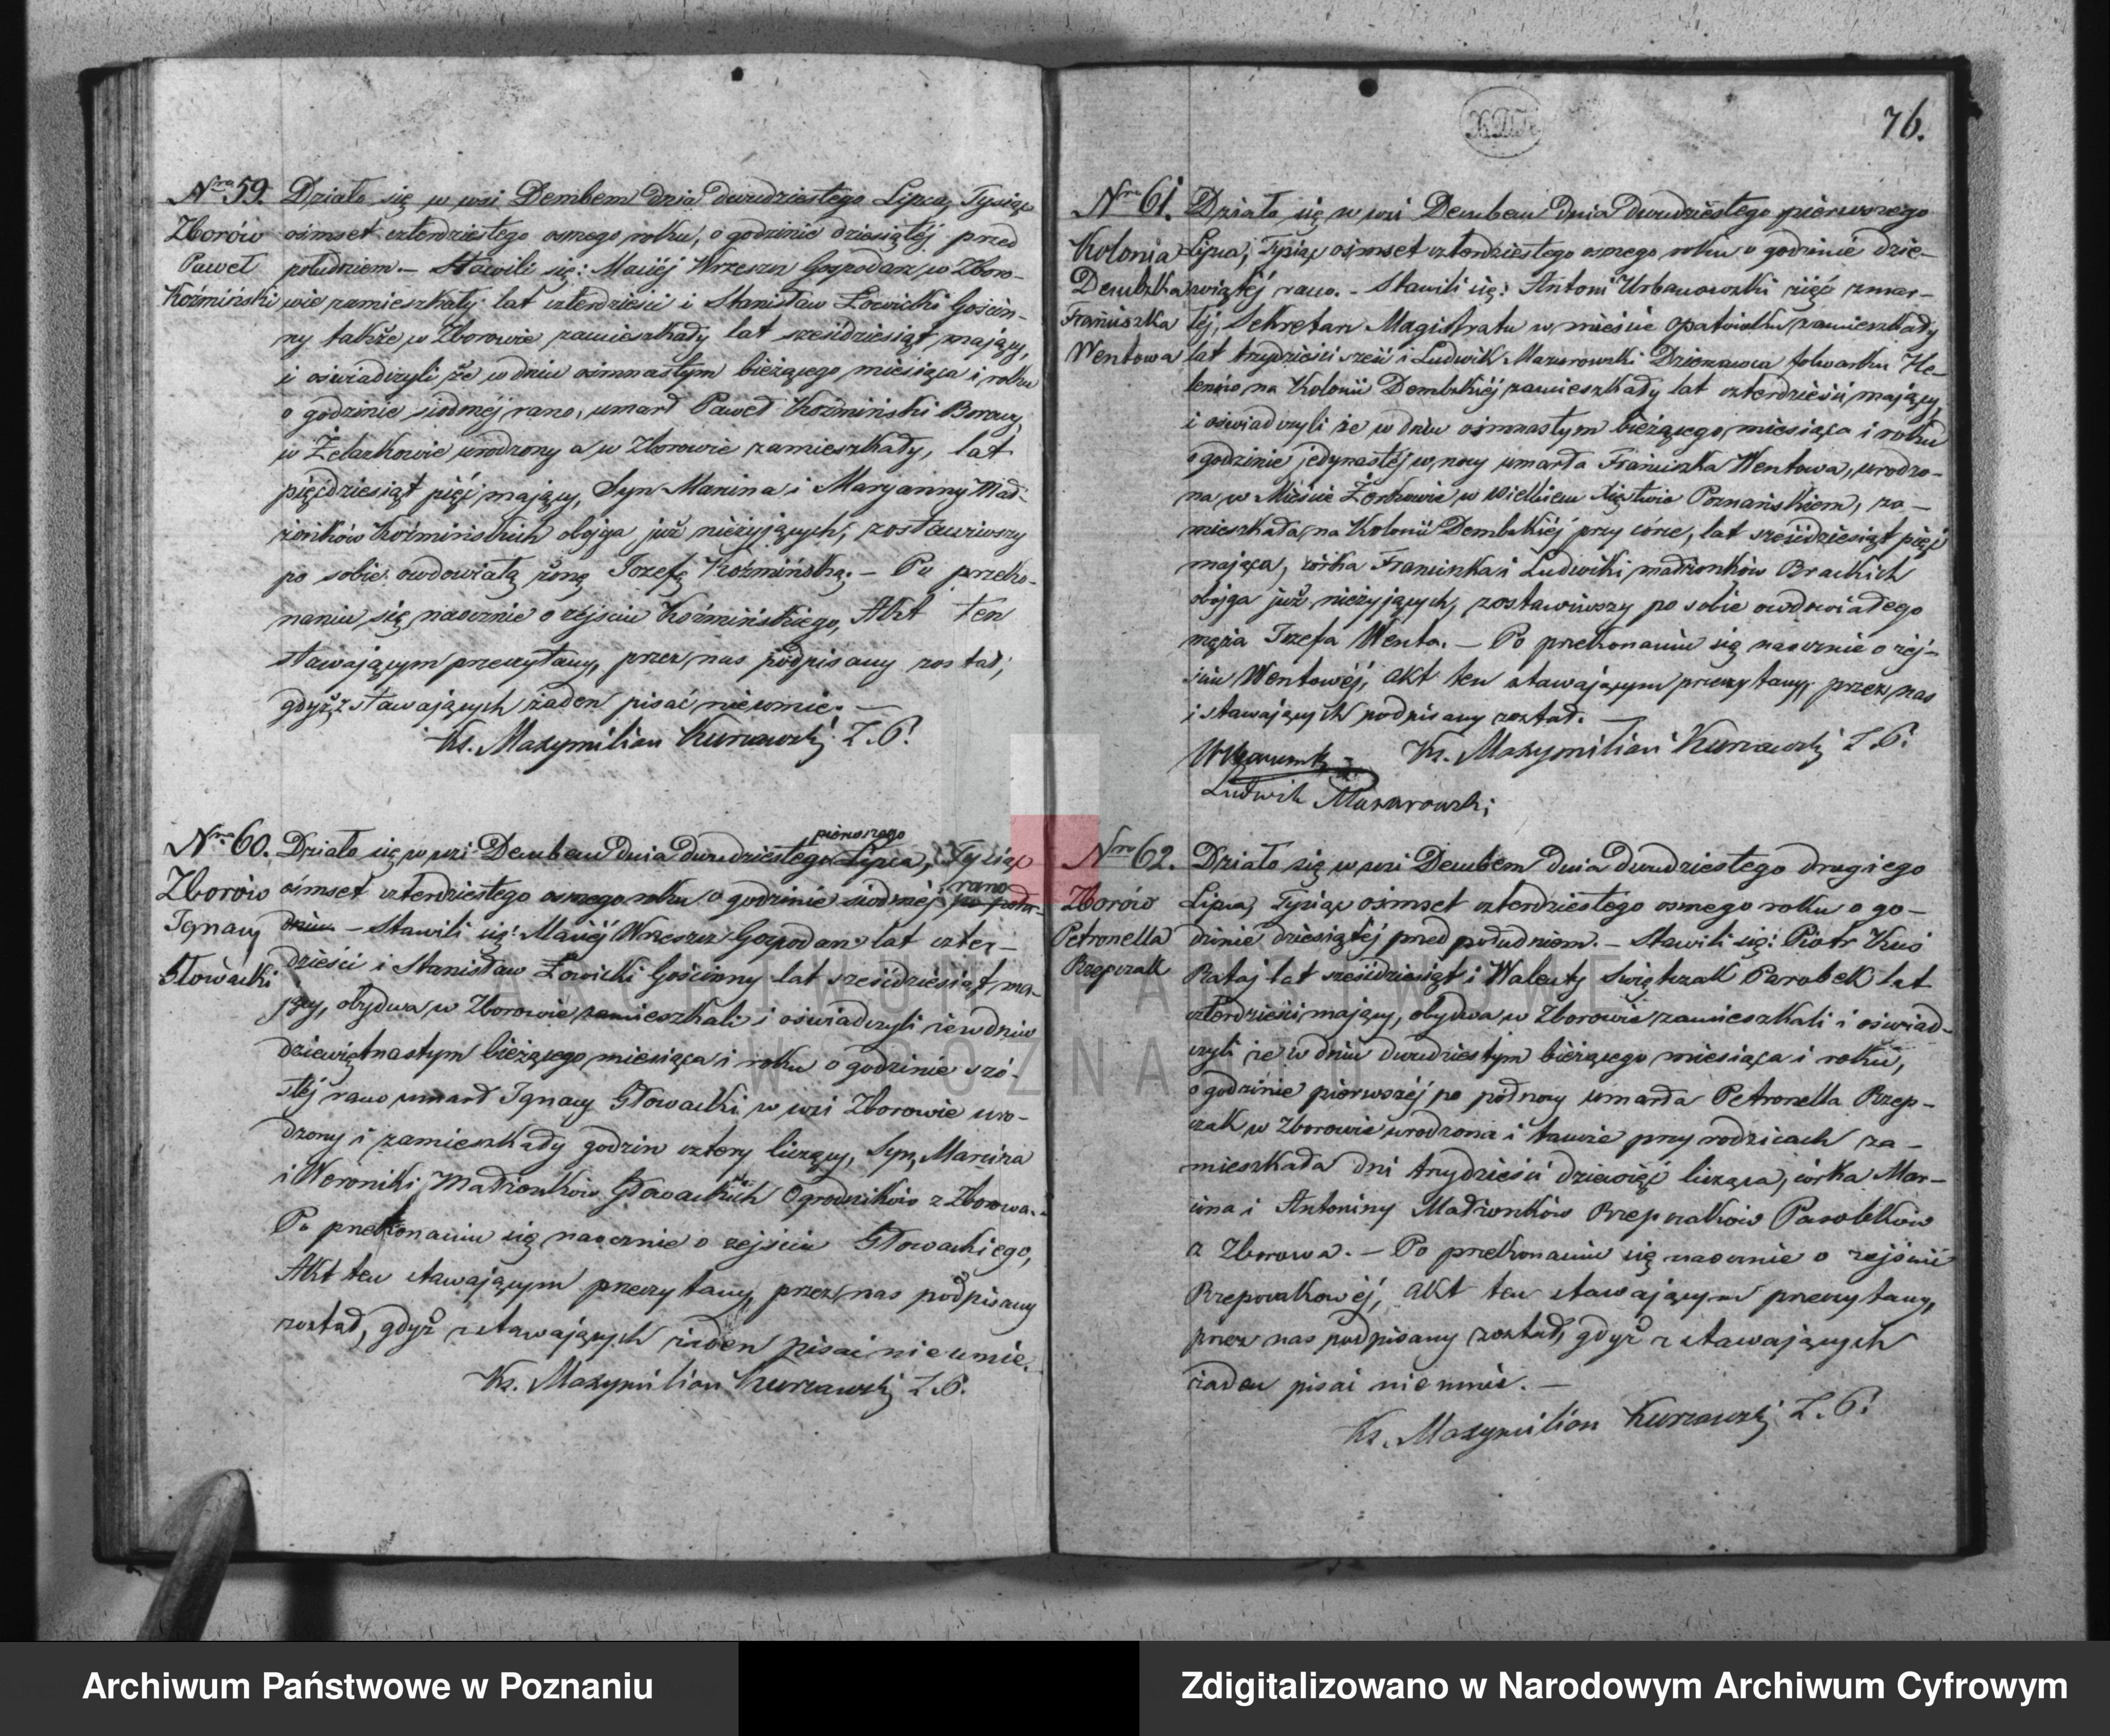 Nro 59.
Zborów
Paweł
Koźmiński
Działo się w wsi Dembem dnia dwudziestego Lipca, Tysiąc
ośmset czterdziestego osmego roku, o godzinie dziesiątéj przed
południem. — Stawili się: Maciéj Wrzeszcz Gospodarz w Zboro-
wie zamieszkały lat czterdzieści i Stanisław Łowicki Gościn-
ny także w Zborowie zamieszkały lat sześćdziesiąt mający,
i oświadczyli że w dniu ośmnastym bieżącego miesiąca i roku
o godzinie siódméj rano, umarł Paweł Koźmiński Borowy,
w Żelazkowie urodzony a w Zborowie zamieszkały, lat
pięćdziesiąt pięć mający, Syn Marcina i Maryanny Mał-
żonków Koźmińskich obojga już nieżyjących, zostawiwszy
po sobie owdowiałą żonę Jozefę Koźmińską. — Po przeko-
naniu się naocznie o zejściu Koźmińskiego, Akt ten
stawającym przeczytany, przez nas podpisany został;
gdyż z stawających żaden pisać nieumie. —
Ks. Maxymilian Kurzawski Z.P.
Nro 60.
Zborów
Ignacy
Głowacki
pierwszego
Działo się w wsi Dembem dnia dwudziestego Lipca, Tysiąc
rano
ośmset czterdziestego osmego roku o godzinie siódméj po połu-
dniu — Stawili się: Maciéj Wrzeszcz Gospodarz lat czter-
dzieści i Stanisław Łowicki Gościnny lat sześćdziesiąt ma-
jący, obydwa w Zborowie zamieszkali i oświadczyli że w dniu
dziewiętnastym bieżącego miesiąca i roku o godzinie szó-
stéj rano umarł Ignacy Głowacki w wsi Zborowie uro-
dzony i zamieszkały godzin cztery liczący, Syn Marcina
i Weroniki Małżonków Głowackich Ogrodników z Zborowa. -
Po przekonaniu się naocznie o zejściu Głowackiego,
Akt ten stawającym przeczytany, przez nas podpisany
został, gdyż z stawających żaden pisać nieumie.
Ks. Maxymilian Kurzawski Z.P.
76.
Nro 61.
Kolonia
Dembska
Franciszka
Wentowa
Działo się w wsi Dembem dnia dwudziestego pierwszego
Lipca, Tysiąc ośmset czterdziestego osmego roku o godzinie dzie-
wiątéj rano. - Stawili się: Antoni Urbanowski zięć zmar-
łéj, Sekretarz Magistratu w mieście Opatówku zamieszkały
lat trzydzieści sześć i Ludwik Mazurowski Dzierzawca folwarku He-
lenów na Kolonii Dembskiéj zamieszkały lat czterdzieści mający,
i oświadczyli że w dniu ośmnastym bieżącego miesiąca i roku
o godzinie jedynastéj w nocy umarła Franciszka Wentowa, urodzo-
na w Mieście Żerkowie w wielkiem Xięstwie Poznańskiem, za-
mieszkała na Kolonii Dembskiéj przy córce, lat sześćdziesiąt pięć
mająca, córka Franciszka i Ludwiki małżonków Brackich
obojga już nieżyjących, zostawiwszy po sobie owdowiałego
męża Jozefa Wenta. — Po przekonaniu się naocznie o zej-
ściu Wentowéj, akt ten stawającym przeczytany, przez nas
i stawających podpisany został. —
Ks. Maxymilian Kurzawski Z.P.
Ludwik Mazurowski
Nro 62.
Zborów
Petronella
Rzepczak
Działo się w wsi Dembem dnia dwudziestego drugiego
Lipca, Tysiąc ośmset czterdziestego osmego roku o go-
dzinie dziesiątéj przed południem. — Stawili się: Piotr Kuś
Rataj lat sześćdziesiąt i Walenty Świętczak Parobek lat
czterdzieści mający, obydwa w Zborowie zamieszkali i oświad-
czyli że w dniu dwudziestym bieżącego miesiąca i roku,
o godzinie pierwszéj po północy umarła Petronella Rzep-
czak w Zborowie urodzona i tamże przy rodzicach za-
mieszkała dni trzydzieści dziewięć licząca, córka Mar-
cina i Antoniny Małżonków Rzepczaków Parobków
z Zborowa. — Po przekonaniu się naocznie o zejściu
Rzepczakowéj, akt ten stawającym przeczytany,
przez nas podpisany został, gdyż z stawających
żaden pisać nieumie. —
Ks. Maxymilian Kurzawski Z.P.
ARCHIWUM PAŃSTWOWE
W POZNANIU
Archiwum Państwowe w Poznaniu
Zdigitalizowano w Narodowym Archiwum Cyfrowym